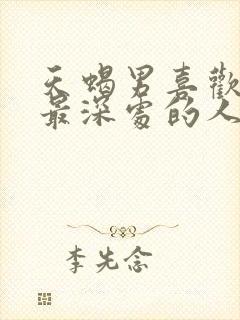 天蝎男喜歡
最深處的人
李先念